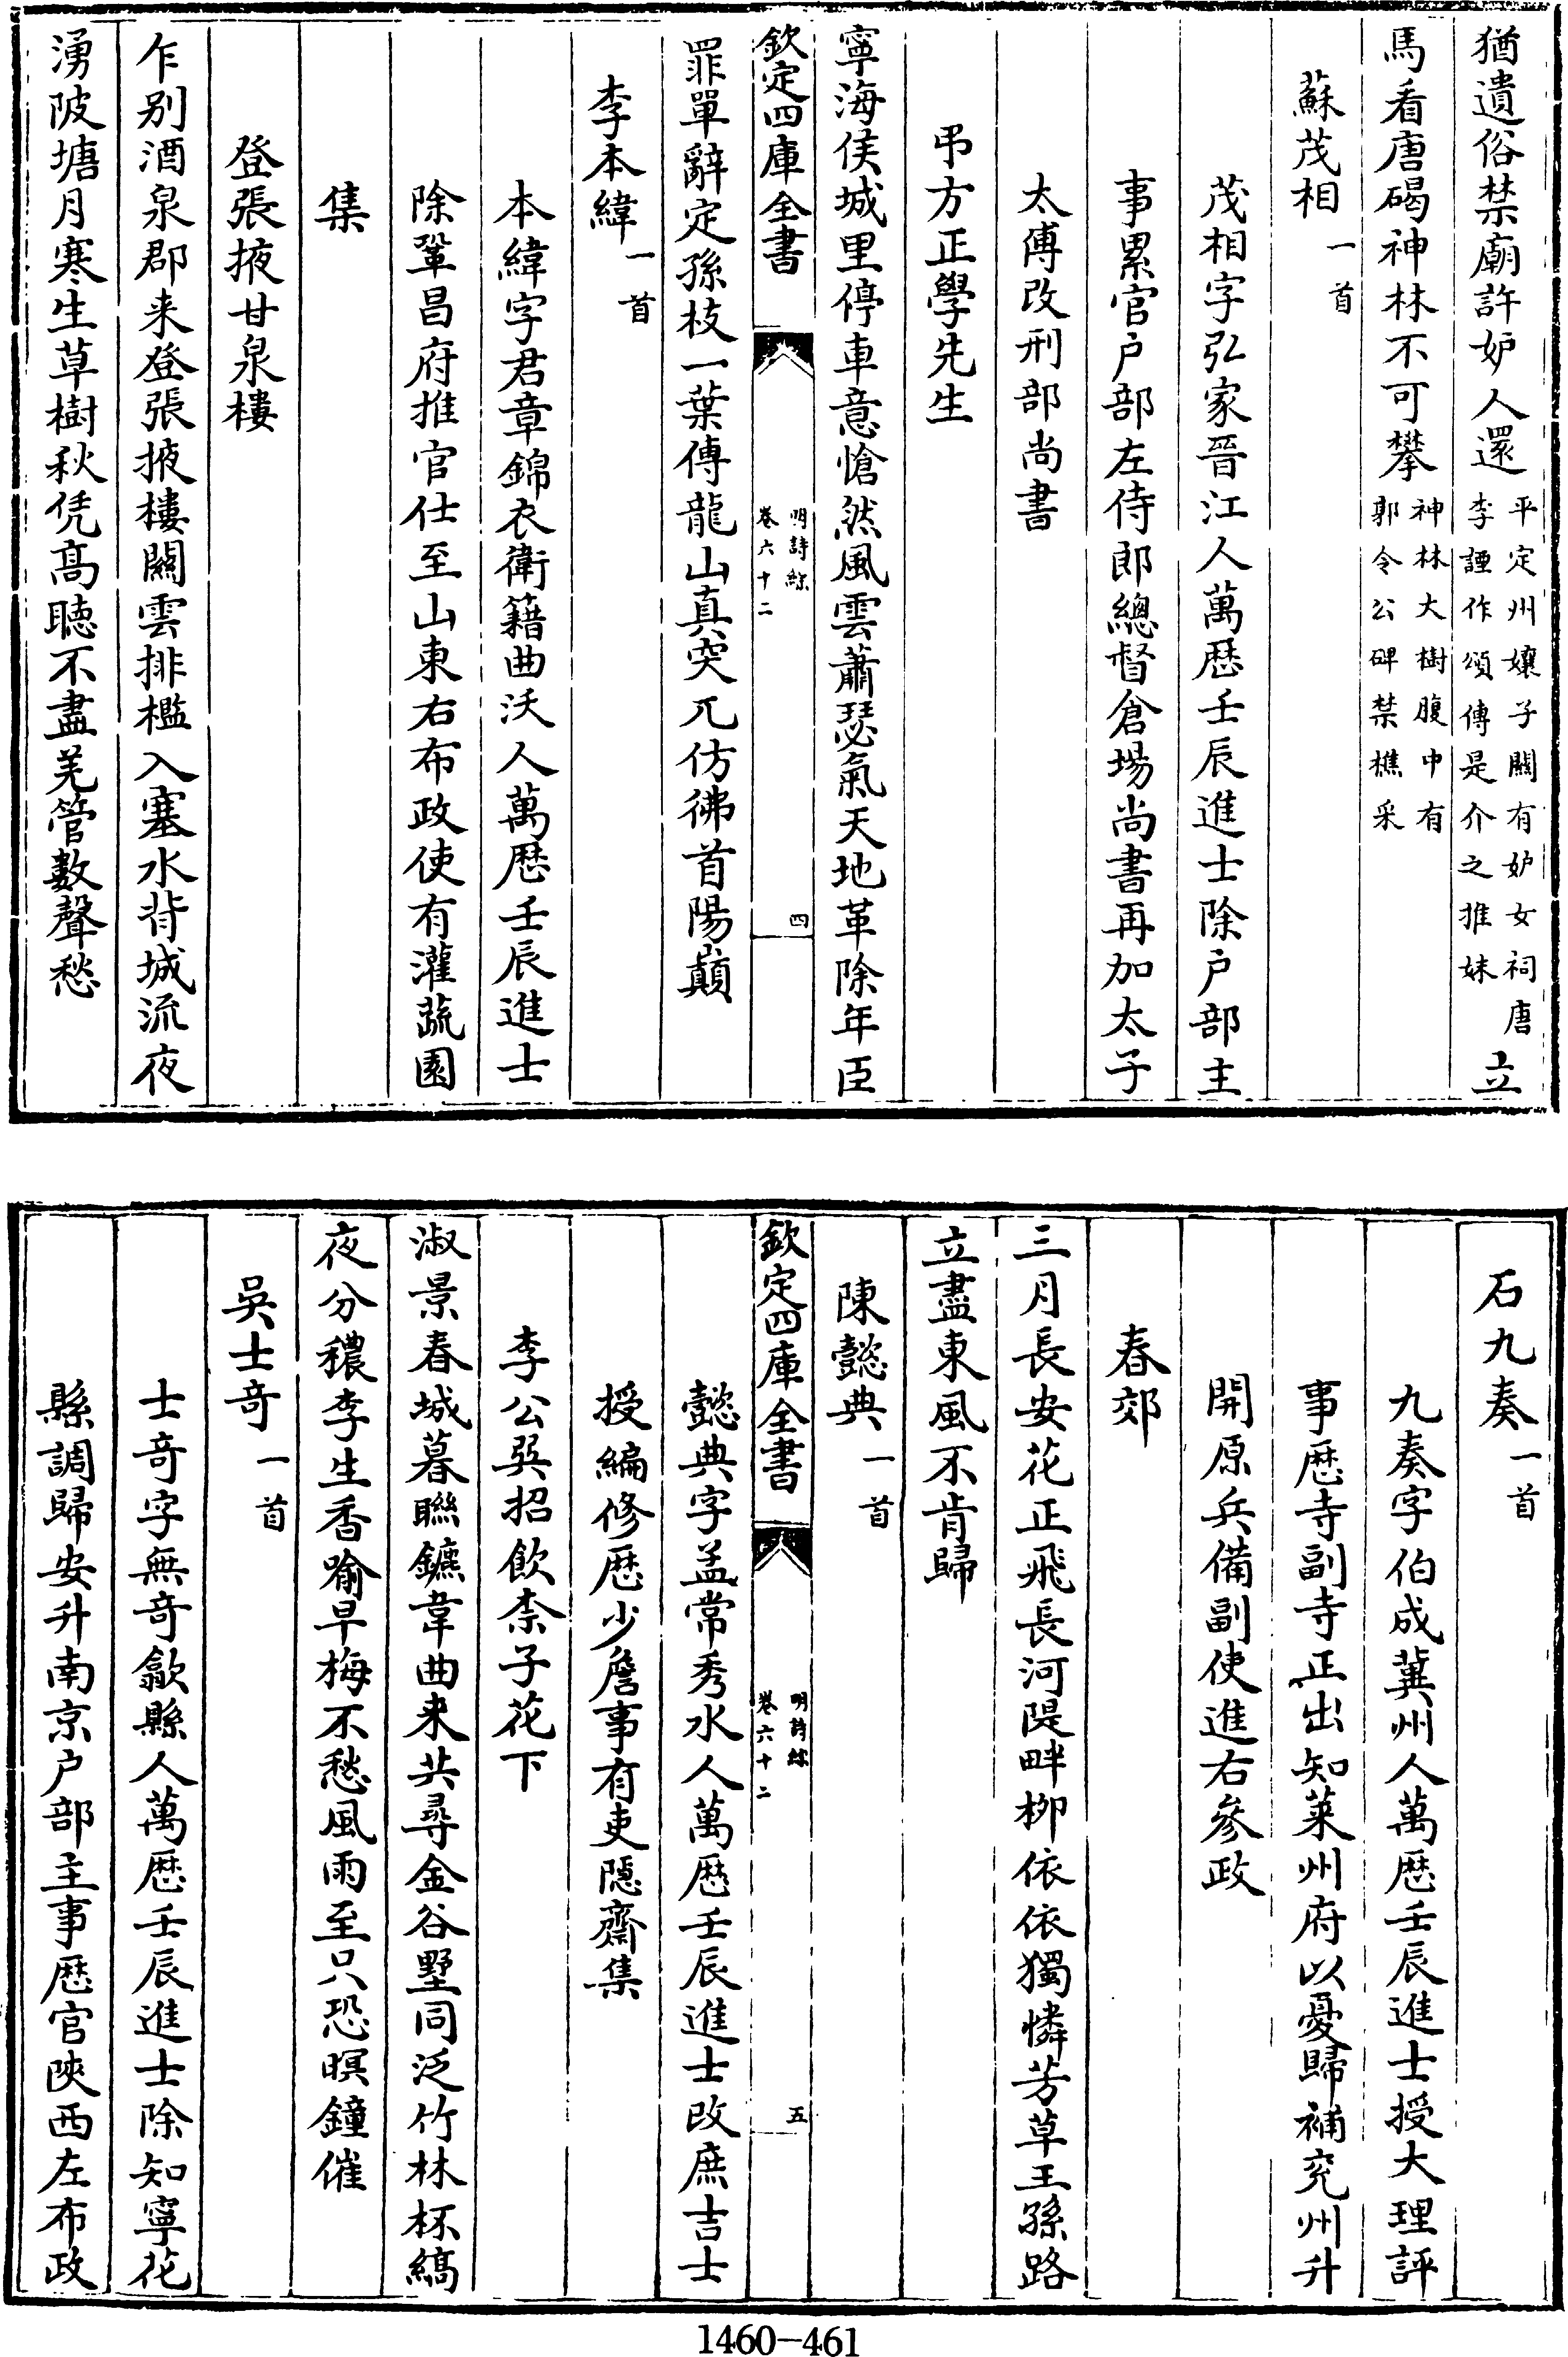 猶遺俗禁廟許妒人還平定州孃子關有妒女祠唐李諲作頌傳是介之推妹立
馬看唐碣神林不可攀神林大樹腹中有郭令公碑禁樵采
蘇茂相一首
茂相字弘家晉江人萬厯壬辰進士除户部主
事累官户部左侍郎總督倉場尚書再加太子
太傅改刑部尚書
弔方正學先生
寧海侯城里停車意愴然風雲蕭瑟氣天地革除年臣
欽定四庫全書
明詩綜
卷六十二
四
罪單辭定孫枝一葉傳龍山真突兀仿彿首陽巔
李本緯一首
本緯字君章錦衣衛籍曲沃人萬厯壬辰進士
除鞏昌府推官仕至山東右布政使有灌蔬園
集
登張掖甘泉樓
乍别酒泉郡来登張掖樓關雲排檻入塞水背城流夜
湧陂塘月寒生草樹秋凭髙聴不盡羌管數聲愁
石九奏一首
九奏字伯成冀州人萬厯壬辰進士授大理評
事厯寺副寺正出知萊州府以憂歸補兖州升
開原兵備副使進右參政
春郊
三月長安花正飛長河隄畔柳依依獨憐芳草王孫路
立盡東風不肯歸
陳懿典一首
欽定四庫全書
明詩綜
卷六十二
五
懿典字孟常秀水人萬厯壬辰進士改庶吉士
授編修厯少詹事有吏隱齋集
李公㢲招飲柰子花下
淑景春城暮聯鑣韋曲来共尋金谷墅同泛竹林杯縞
夜分穠李生香喻早梅不愁風雨至只恐暝鐘催
吳士奇一首
士奇字無奇歙縣人萬厯壬辰進士除知寧花
縣調歸安升南京户部主事厯官陝西左布政
1460-461